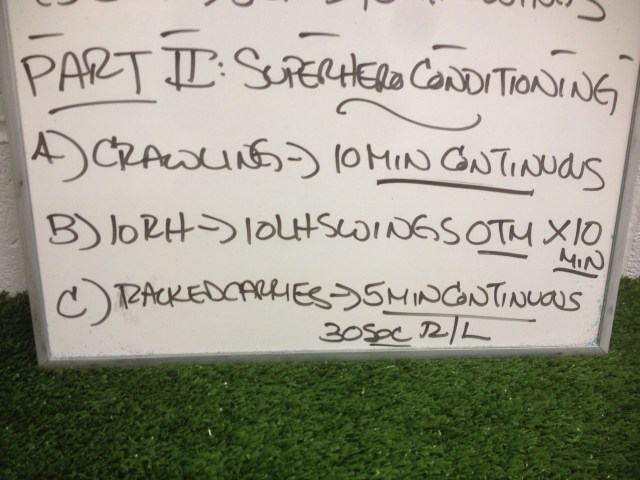 PART II: SUPERHERO CONDITIONING
A) CRAWLING → 10 MIN CONTINUOUS
B) 10RH → 10LH SWINGS OTM X10
MIN
C) RACKED CARRIES → 5 MIN CONTINUOUS
30 SEC R/L